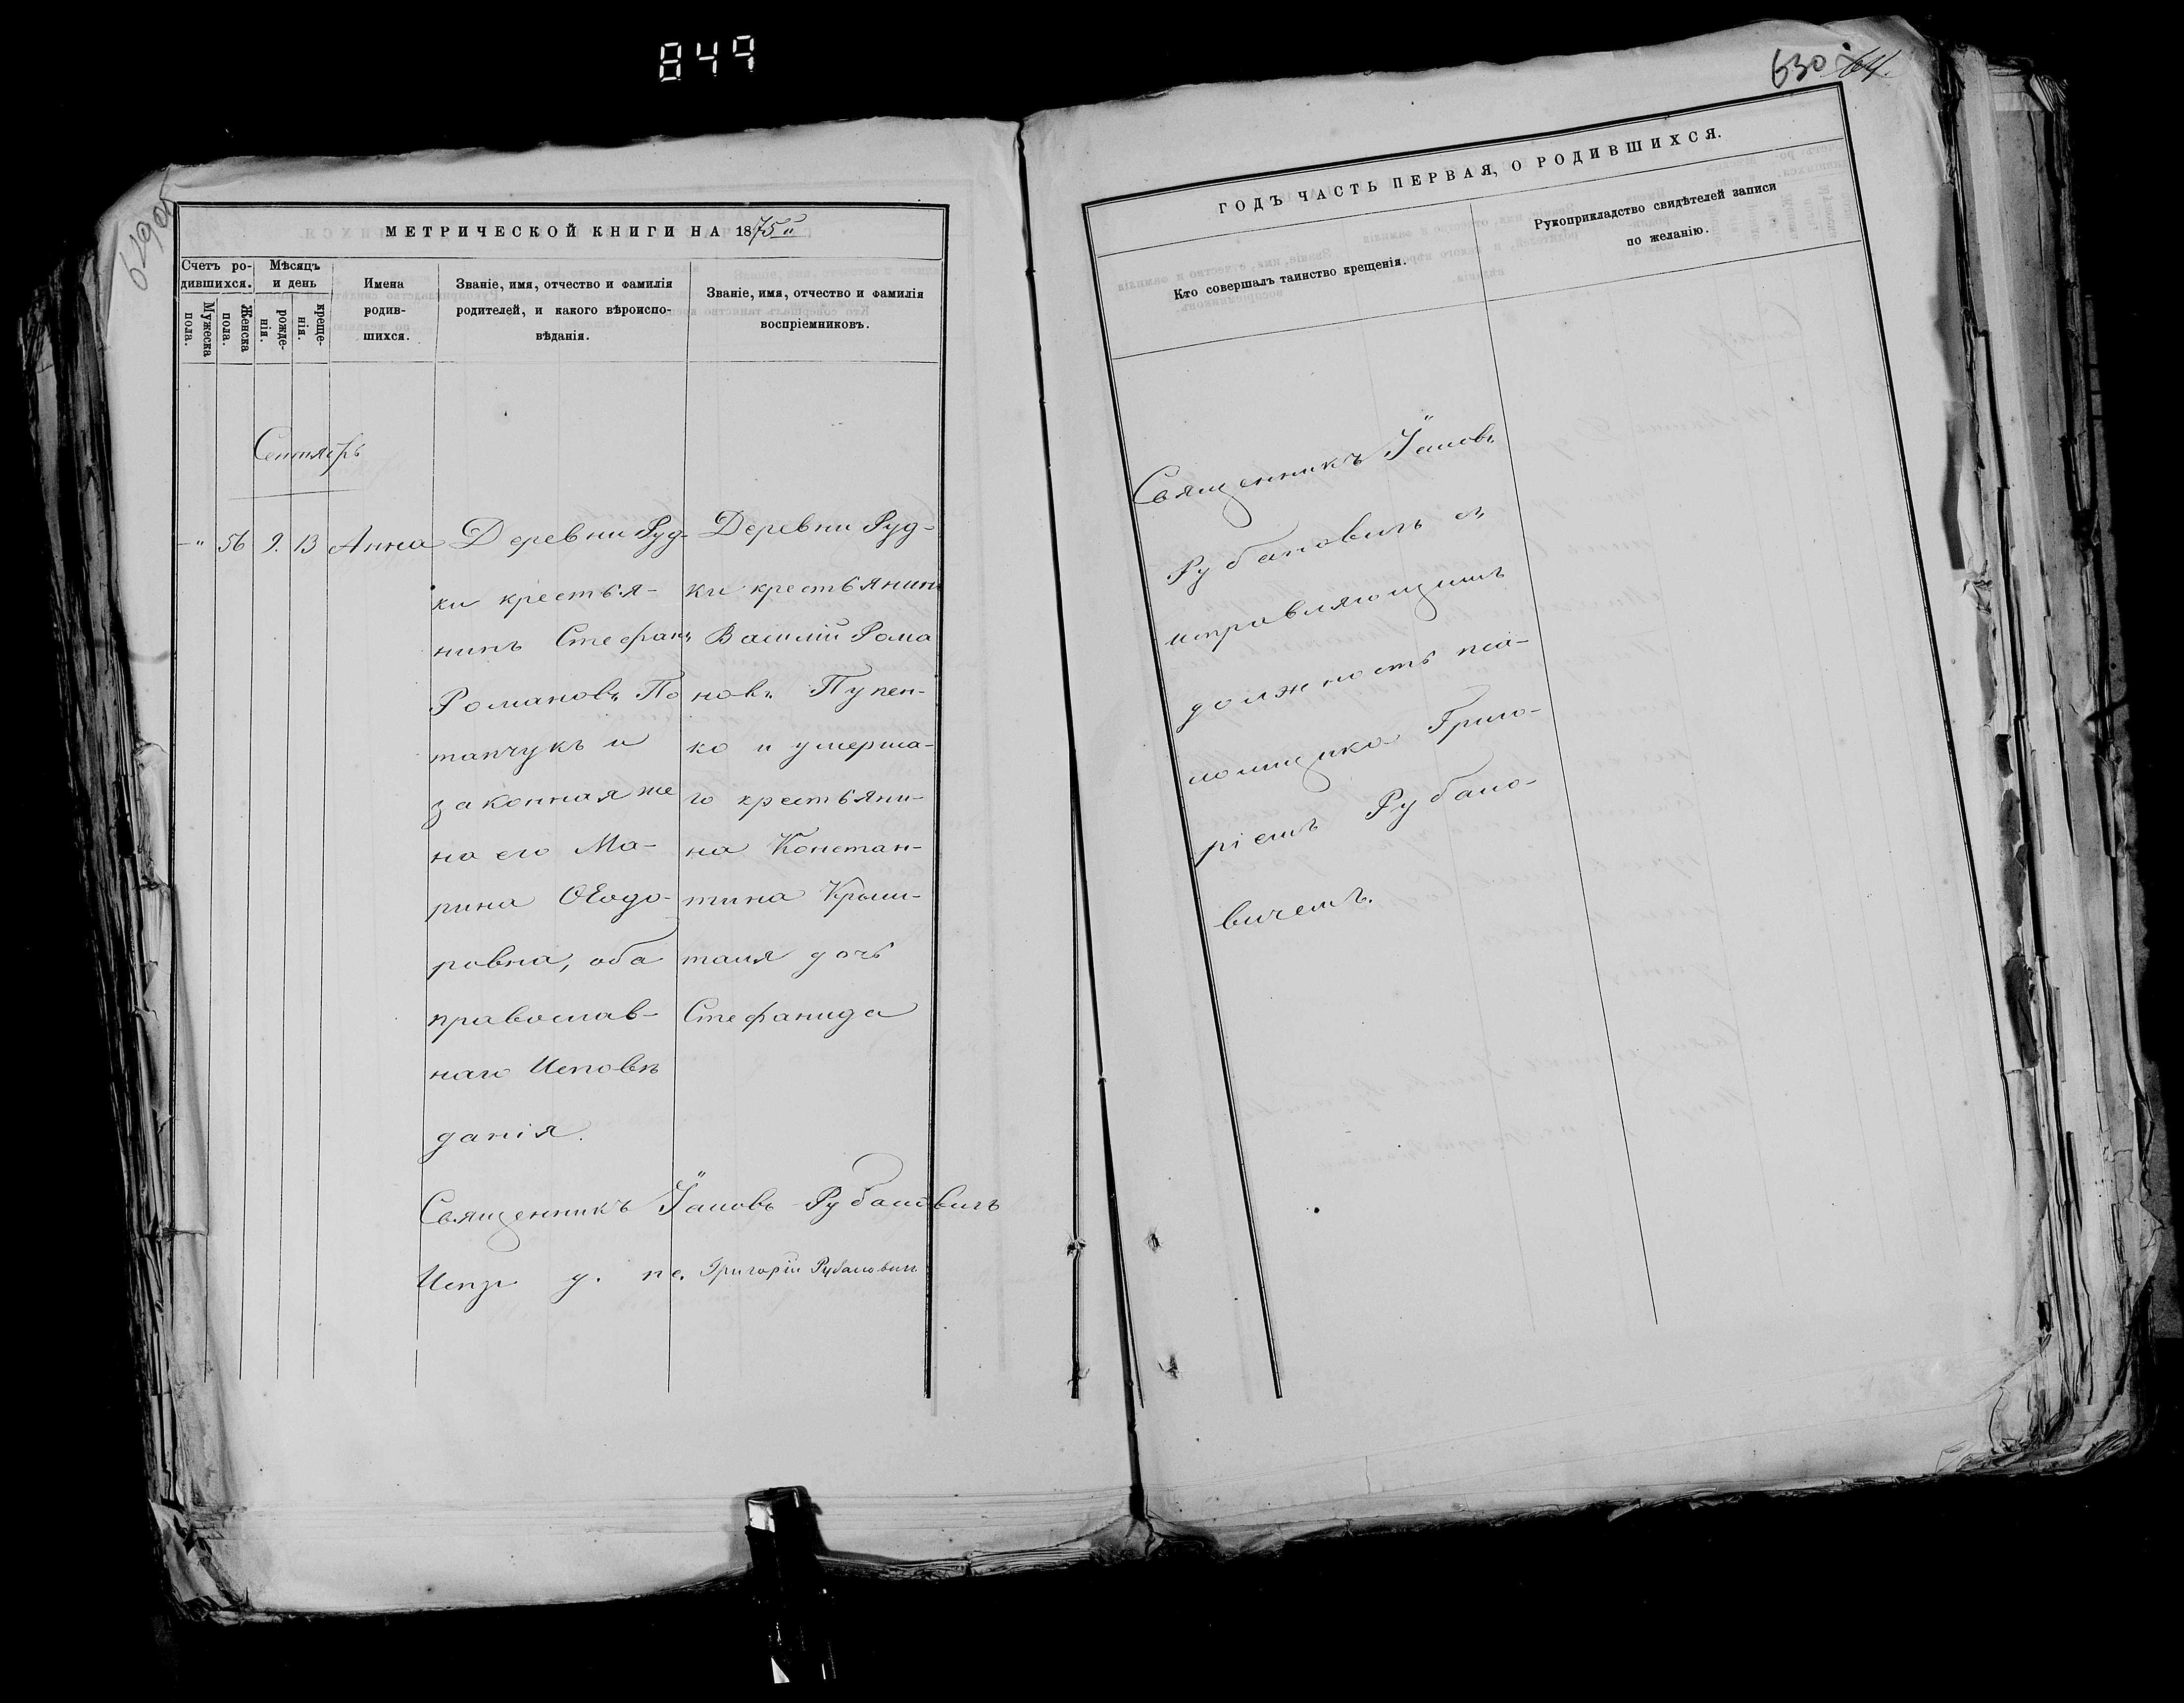 849
630 64.
649 об
МЕТРИЧЕСКОЙ КНИГИ НА 1875й
Счетъ ро-
дившихся.
Мужеска
пола.
Женска
пола.
Мѣсяцъ
и день
рожде-
нія.
креще-
нія.
Имена
родив-
шихся.
Званіе, имя, отчество и фамилія
родителей, и какого вѣроиспо-
вѣданія.
Званіе, имя, отчество и фамилія
воспріемниковъ.
Сентябрь
-" 56 9. 13 Анна
Деревни Руд-
ки крестья-
нинъ Стефанъ
Романовъ По
тапчукъ и
законная же
на его Ма-
рина Ѳеодо-
ровна, оба
православ-
наго Исповѣ
данія.
Деревни Руд-
ки крестьянинъ
Василій Рома
новъ Пупен-
ко и умерша-
го крестьяни-
на Констан-
тина
дочь
Стефанида
Священникъ Іаковъ Рубановичъ
Испр. д. пс. Григорій Рубановичъ
ГОДЪ ЧАСТЬ ПЕРВАЯ, О РОДИВШИХСЯ.
Кто совершалъ таинство крещенія.
Рукоприкладство свидѣтелей записи
по желанію.
Священникъ Іаковъ
Рубановичъ съ
исправляющимъ
должность пса-
ломщика Григо-
ріемъ Рубано-
вичемъ.